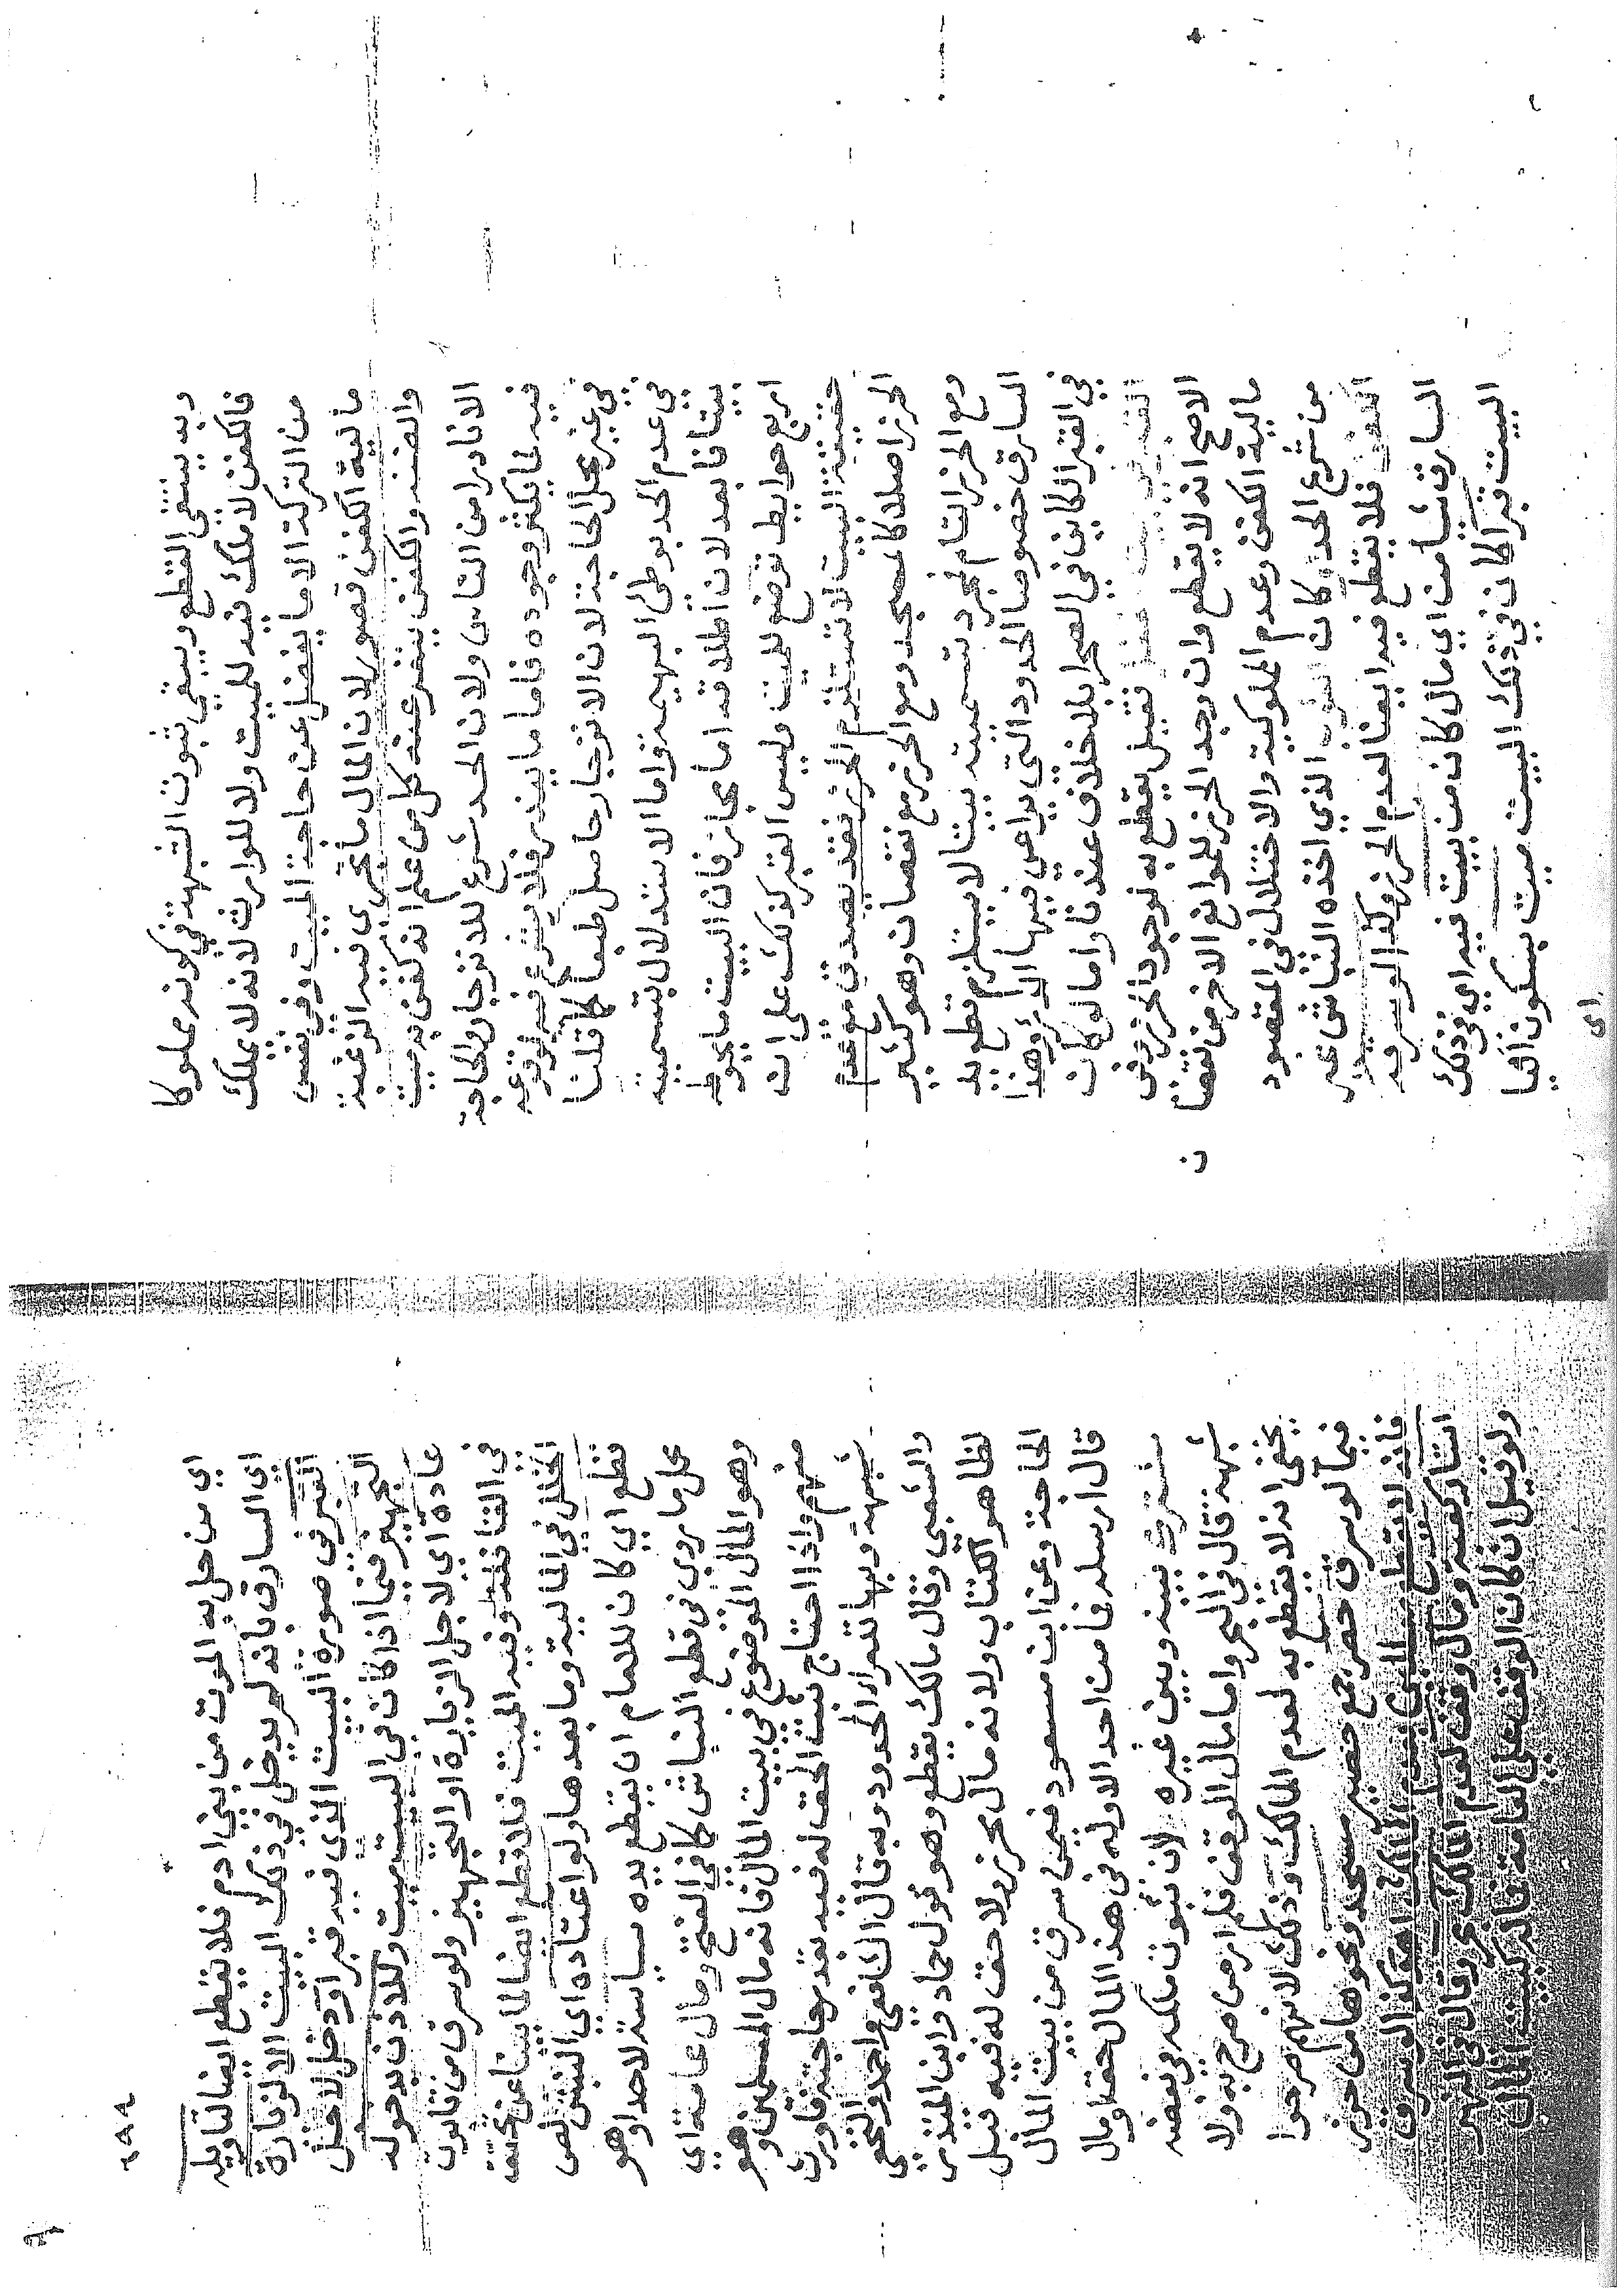 وبه ينتفي القطع ويبقي ثبوت الشبهة في كونه مملوكا
فالكفن لا ملك فيه للميت ولا للوارث لانه لا يملك
من التركة الا ما يفضل عن حاجة الميت وفي نفس
مالية الكفن قصور لان المال ما تجرى فيه الرغبة
والضنه والكفن ينفر عنه كل من علم انه كفن به ميت
الا نادرا من الناس ولان الحد شرع للانزجار والحاجة
فيه لما يكثر وجوده فاما ما يندر فلا يشرع فيه لوقوعه
في غير محل الحاجة لان الانزجار حاصل طبعا كما قلنا
في عدم الحد بوطئ البهيمة واما الاستدلال بتسمية
بيتا فابعد لان اطلاقه اما مجاز فان البيت ما يحوطه
اربع حوايط توضع للبيت وليس القبر كذلك على ان
حقيقة البيت لا تستلزم الحرز فقد يصدق مع عدم
الحرز اصلا كالمسجد ومع الحرز مع نقصان وهو كثير
ومع الحرز التام فمجرد تسميته بيتا لا يستلزم قطع يد
السارق خصوصا الحدود التي يراعي فيها الدرء وهذا
في القبر الكاين في الصحرا بلا خلاف عندنا واما لو كان
القبر في بيت مقفل فقيل يقطع به لوجود الحرز
الاصح انه لا يقطع وان وجد الحرز للموانع الاخر من نقصان
مالية الكفن وعدم المملوكية والاختلال في المقصود
من شرع الحد وكان الثوب الذي اخذه النباش غير
الكفن فلا يقطع فيه ايضا لعدم الحرز وكذا لو سرق
السارق شيا من اي مال كان من بيت فيه اي في ذلك
البيت قبر اكان في ذلك البيت ميت يسكون اليا
اى
١٩٨
اي من حل به الموت من بني ادم فلا يقطع ايضا لتاويله
اى السارق بانه لم يدخل في ذلك البيت الا لزيارة
القبر في صورة البيت الذي فيه قبر او دخل لاجل
التجهيز فيما اذا كان في البيت ميت وللاذن بدخوله
عادة اي لاجل الزيارة او التجهيز ولو سرق من تابوت
في القافلة وفيه الميت فلا قطع ايضا لما بينا من تحقق
الخلل في المالية وما بعدها ولو اعتاده اي النبش لص
فقطع اي كان للامام ان يقطع يده سياسة لا حدا وهو
محل ما روي في قطع النباش كما في الفتح ومال عامة اي
وهو المال الموضوع في بيت المال فانه مال المسلمين وهو
منهم واذا احتاج ثبت الحق له فيه بقدر حاجته فاورث
شبهة وبها تندراء الحدود وبه قال الشافعي واحمد والنخعى
والشعبي وقال مالك يقطع وهو قول حماد وابن المنذر
لظاهر الكتاب ولانه مال محرز ولا حق له فيه قبل
الحاجة وعن ابن مسعود فيمن سرق من بيت المال
قال ارسله فما من احد الا وله في هذا المال حق او مال
مشترك بينه وبين غيره لان ثبوت ملكه في بعضه
شبهة قال في البحر واما مال الوقف فلم ار من صرح به ولا
يخفى انه لا يقطع به لعدم المالك وذلك لانهم صرحوا
فيما لو سرق حصر جمع حصير مسجد ونحوها من حرز
فانه لا يقطع لعدم المالك وكذا لو سرق
استار الكعبة ومال وقف لعدم المالك بحر وقال في النهر
ولو قيل ان كان الوقف على العامة فماله كبيت المال